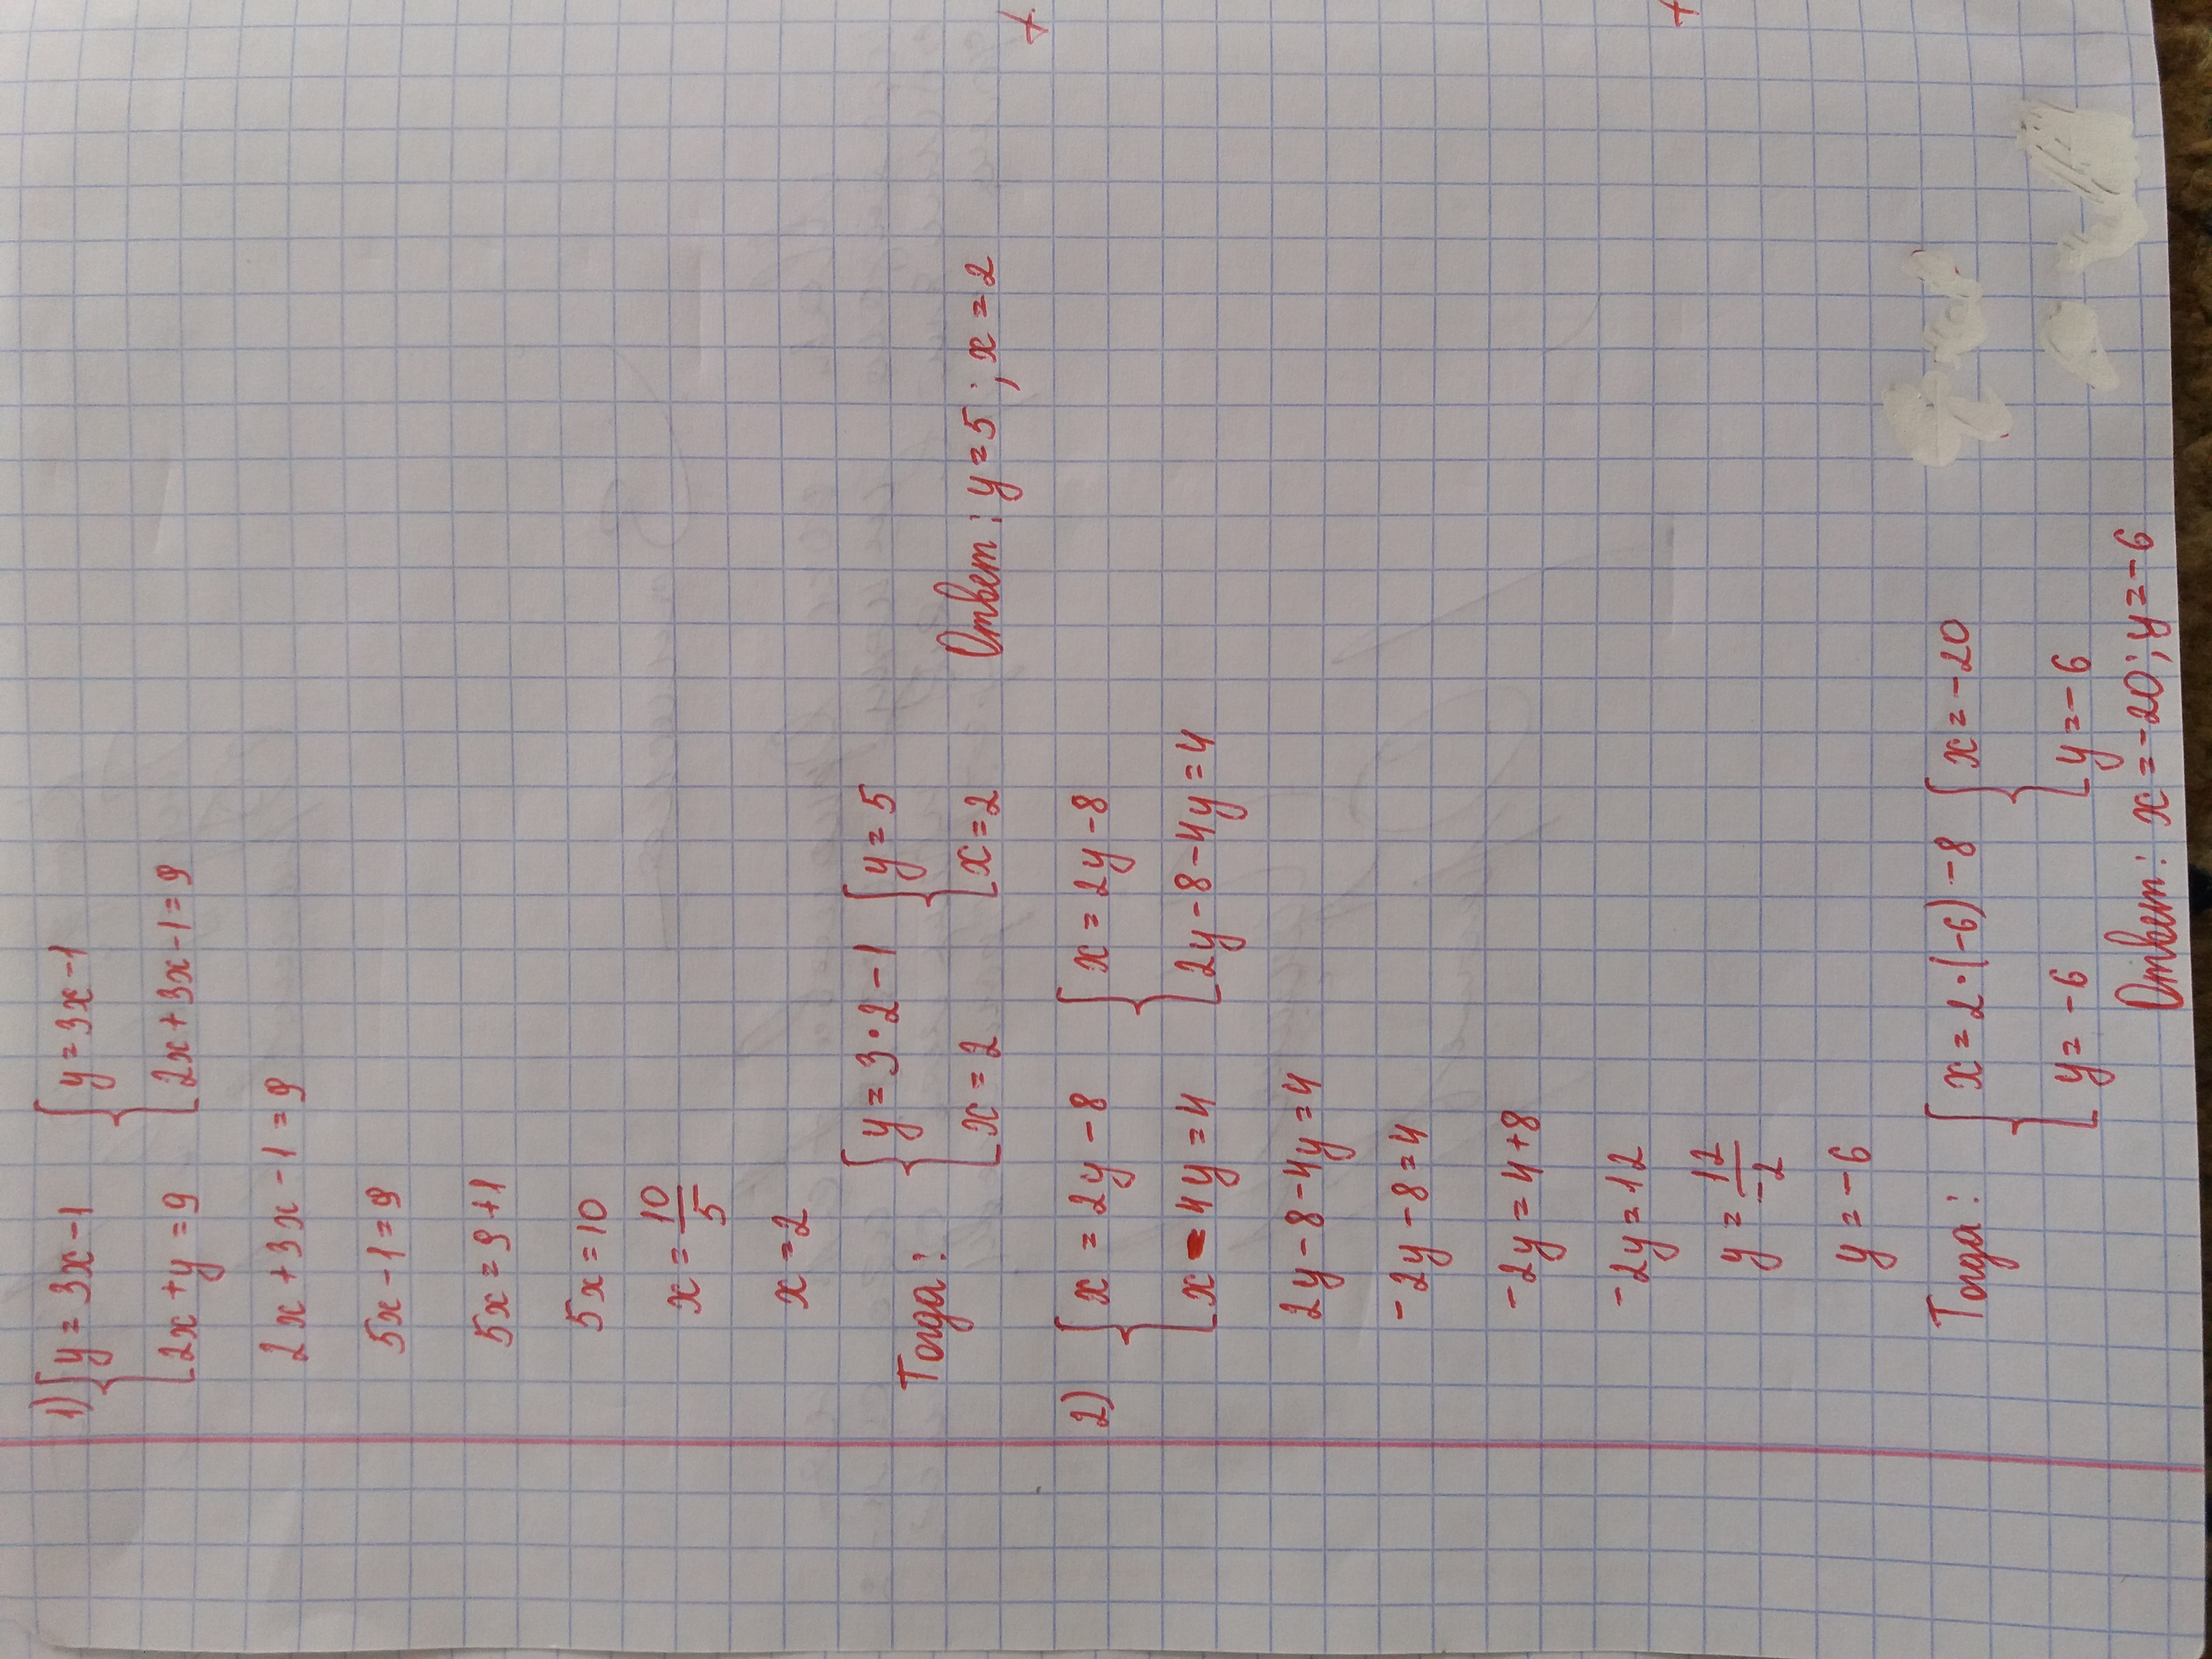 1) { y = 3x - 1 { y = 3x - 1
2x + y = 9 2x + 3x - 1 = 9
2x + 3x - 1 = 9
5x - 1 = 9
5x = 9 + 1
5x = 10
x = 10/5
x = 2
Тогда: { y = 3·2 - 1 { y = 5
x = 2 x = 2
Ответ: y = 5; x = 2
2) { x = 2y - 8 { x = 2y - 8
x - 4y = 4 2y - 8 - 4y = 4
2y - 8 - 4y = 4
-2y - 8 = 4
-2y = 4 + 8
-2y = 12
y = 12/-2
y = -6
Тогда: { x = 2·(-6) - 8 { x = -20
y = -6 y = -6
Ответ: x = -20; y = -6